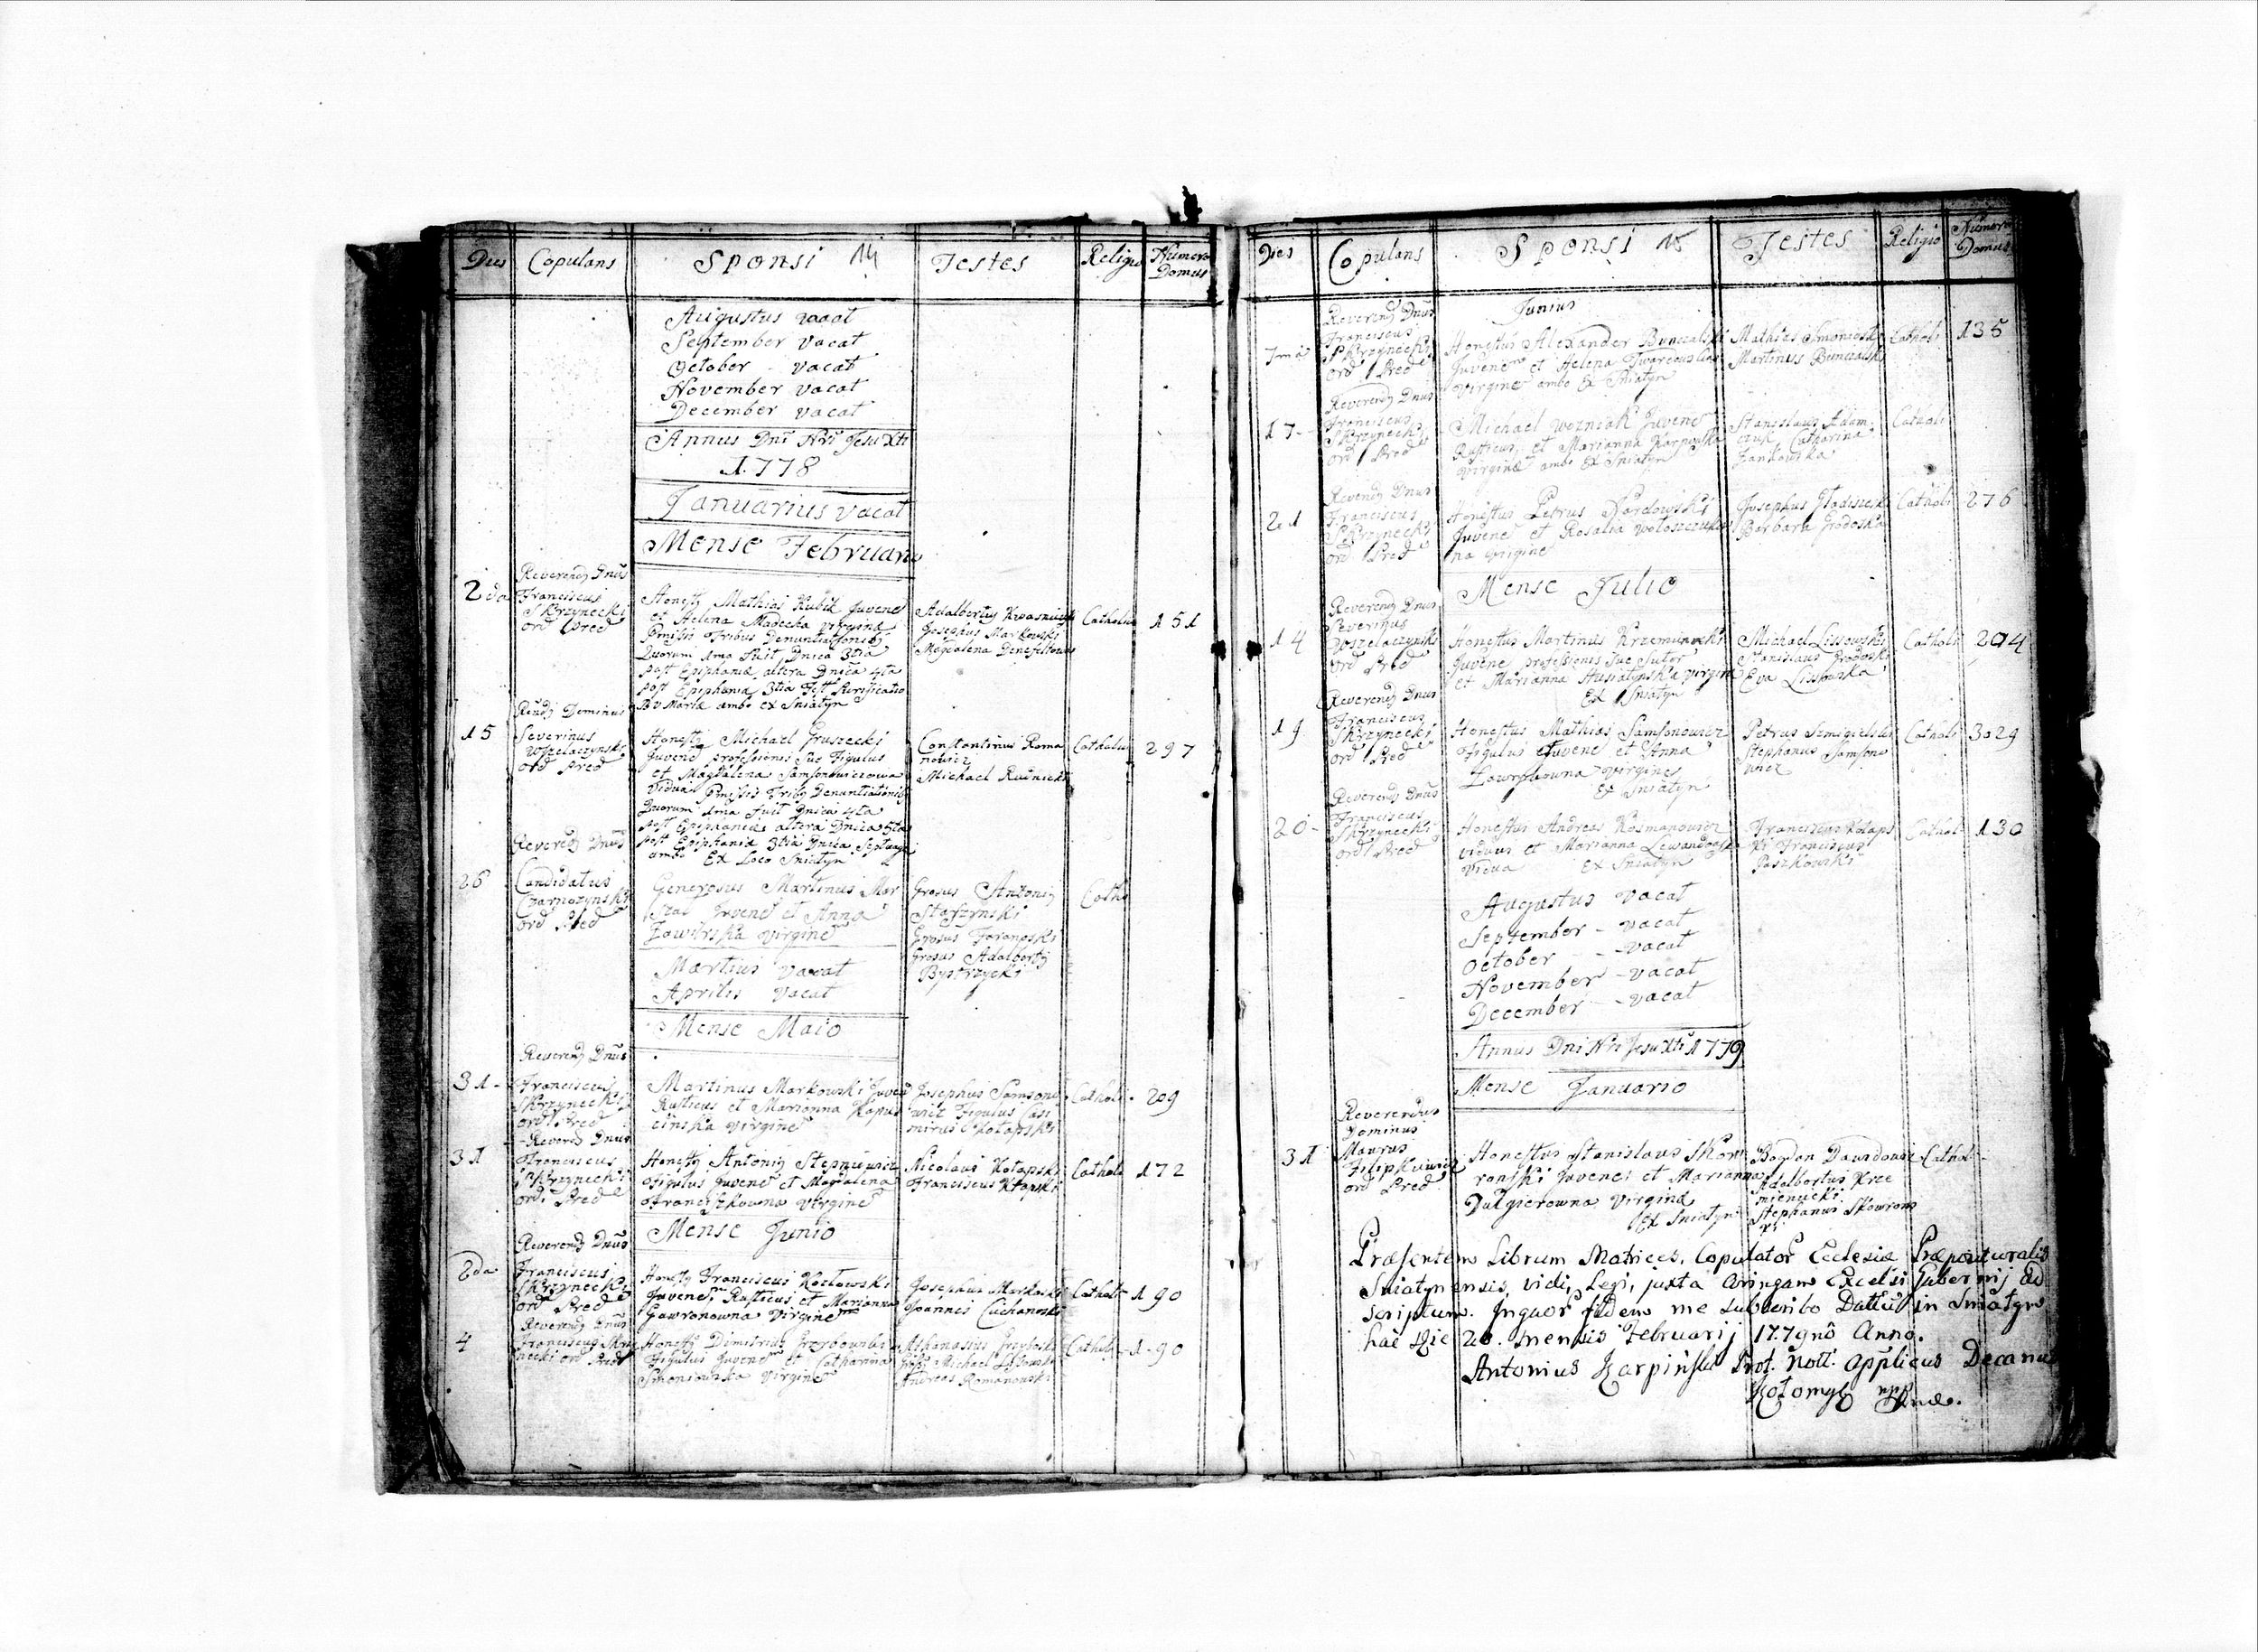 Dies Copulans Sponsi 14 Testes Religio Numero Domus
Augustus vacat
September vacat
October vacat
November vacat
December vacat
Annus Dni Nri Jesu Xti
1778
Januarius vacat
Mense Februario
2da
Reverendj Dnus
Franciscus
Skrzynecki
ord Pred
Honestj Mathias Kubik Juvene
et Helena Madecka virgine
Pmissis Tribus Denuntiationibj
Quorum 1ma Fuit Dnica 3tia
post Epiphania altera Dnica 4ta
post Epiphania 3tia Fest Purificatio
BV Maria ambo ex Sniatyn
Adalbertus
Josephus Markowski
Magdalena
Catholi
151
15
Rendj Dominus
Severinus
ord Pred
Honestj Michael Gruszecki
Juvene professionis sue Figulus
et Magdalena Samsonowiczowa
vidua Pmissis Tribj Denuntiationibj
Quorum 1ma Fuit Dnica 4ta
post Epiphaniae altera Dnica 5ta
post Epiphania 3tia Dnica Septuag
ambo Ex Loco Sniatyn
Constantinus Roma
nowicz
Michael Rudnicki
Catholi
297
26
Reverendj Dnus
Candidatus
ord Pred
Generosus Martinus Mar
szal Juvene et Anna
Zawirska virgine
Grosus Antonij
Staszynski
Grosus
Grosus Adalbertj
Bystrzycki
Cath
Martius vacat
Aprilis vacat
Mense Maio
31
Reverendj Dnus
Franciscus
Skrzynecki
ord Pred
Martinus Markowski Juvene
Rusticus et Marianna Kapus
cinska virgine
Josephus Samsono
wicz Figulus Casi
mirus Kotapski
Catholi
209
31
Reverendj Dnus
Franciscus
Skrzynecki
ord. Pred
Honestj Antonij Stepniewicz
Figulus Juvene et Magdalena
Franciszkowna virgine
Nicolaus Kotapski
Franciscus Ktapski
Catholi
172
Mense Junio
2da
Reverendj Dnus
Franciscus
Skrzynecki
ord Pred
Honestj Franciscus Kozlowski
Juvene Rusticus et Marianna
Gawronowna virgine
Josephus Markoski
Joannes
Catholi
190
4
Reverendj Dnus
Franciscus Skrzy
necki ord Pred
Honestj Dimitrius
Figulus Juvene et Catharina
Simonowska virgine
Athanasius
Michael
Andreas Romanowski
Catholi
190
Dies Copulans Sponsi 15 Testes Religio Numero Domus
Junius
7ma
Reverendj Dnus
Franciscus
Skrzynecki
ord Pred
Honestus Alexander Bunczalski
Juvene et Helena
virgine ambo Ex Sniatyn
Mathias
Martinus Bunczalski
Catholi
135
17
Reverendj Dnus
Franciscus
Skrzynecki
ord Pred
Michael Wozniak Juvene
Rusticus, et Marianna Karpowska
virgine ambo Ex Sniatyn
Stanislaus Adam
czuk Catharina
Jankowska
Catholi
21
Reverendj Dnus
Franciscus
Skrzynecki
ord Pred
Honestus Petrus
Juvene et Rosalia
na virgine
Josephus
Barbara Grodoska
Catholi
276
Mense Julio
14
Reverendj Dnus
Severinus
ord Pred
Honestus Martinus Krzeminski
Juvene professionis sue Sutor
et Marianna Husiatynska virgine
Ex Sniatyn
Michael Lissowski
Stanislaus Grodoski
Eva Lissowska
Catholi
204
19
Reverendj Dnus
Franciscus
Skrzynecki
ord Pred
Honestus Mathias Samsonowicz
Figulus Juvene et Anna
virgines
Ex Sniatyn
Petrus
Stephanus Samsono
wicz
Catholi
3029
20
Reverendj Dnus
Franciscus
Skrzynecki
ord Pred
Honestus Andreas Kosmanowicz
viduus et Marianna Lewandowska
vidua Ex Sniatyn
Franciscus Kotaps
ki Franciscus
Paszkowski
Cathol
130
Augustus vacat
September - vacat
October - vacat
November - vacat
December - vacat
Annus Dni Nri Jesu Xti 1779
Mense Januario
31
Reverendus
Dominus
Maurus
Filipkiewicz
ord Pred
Honestus Stanislaus Skow
ronski Juvenes et Marianna
Dulgierowna virgine
Ex Sniatyn
Bogdan Dawidowicz
Adalbertus Krze
mienucki
Stephanus Skowrons
ki
Cathol
Praesentem Librum Matrices, Copulator Ecclesiae Praeposituralis
Sniatynensis, vidi, Legi, juxta aringam Excelsi Gubernij ad
scriptum. Inquor fidem me subscribo Dattum in Sniatyn
hac Die 20. mensis Februarij 1779no Anno.
Antonius Karpiński Prot. Nott. Applicus Decanus
Kołomyę mpp